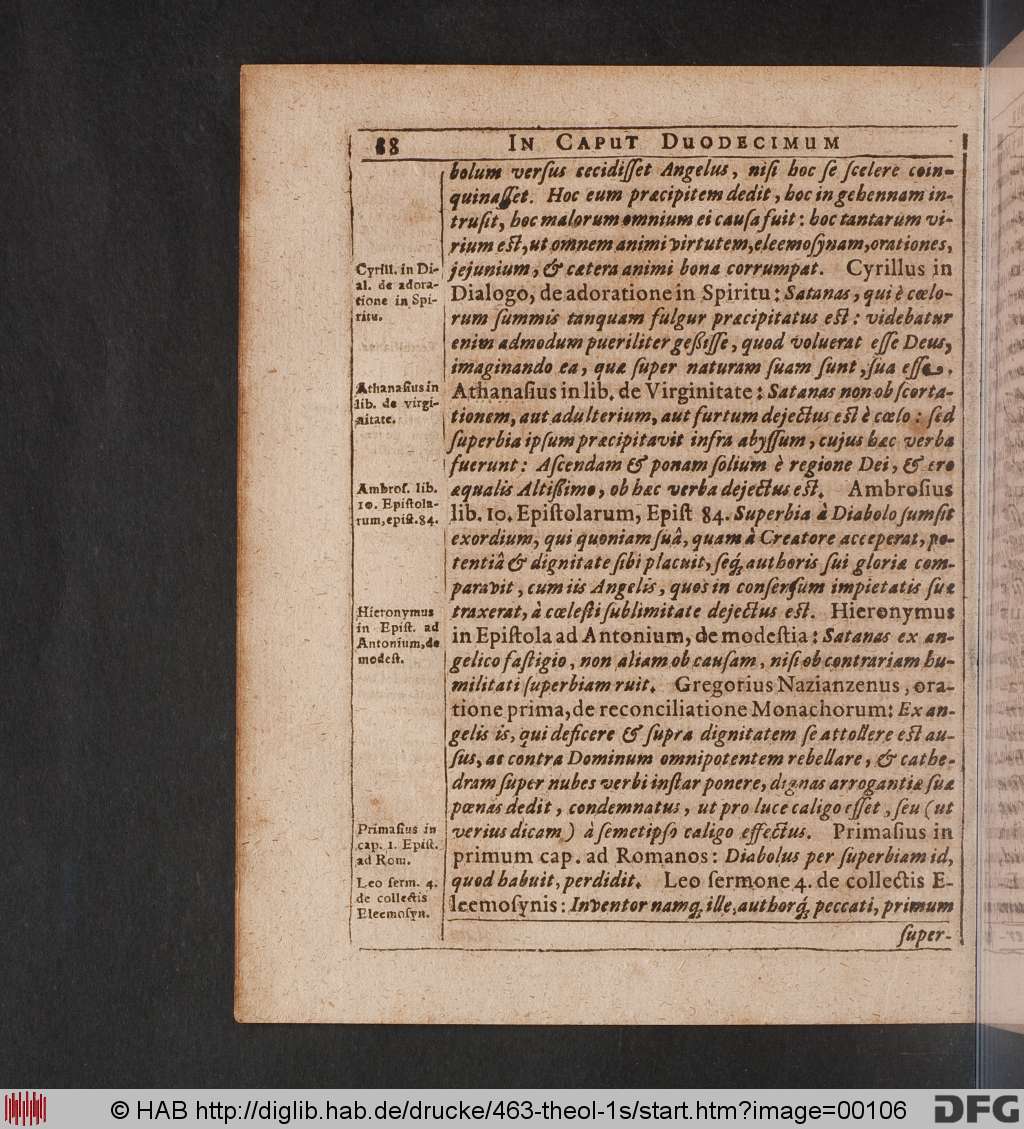 88 IN CAPUT DUODECIMUM
bolum versus cecidisset Angelus, nisi hoc se scelere coin-
quinasset. Hoc eum præcipitem dedit, hoc in gehennam in-
trusit, hoc malorum omnium ei causa fuit: hoc tantarum vi-
rium est, ut omnem animi virtutem, eleemosynam, orationes,
jejunium, & cætera animi bona corrumpat. Cyrillus in
Dialogo, de adoratione in Spiritu: Satanas, qui è cœlo-
rum summis tanquam fulgur præcipitatus est: videbatur
enim admodum pueriliter gessisse, quod voluerat esse Deus,
imaginando ea, quæ super naturam suam sunt, sua esse.
Athanasius in lib. de Virginitate: Satanas non ob scorta-
tionem, aut adulterium, aut furtum dejectus est è cœlo: sed
superbia ipsum præcipitavit infra abyssum, cujus hæc verba
fuerunt: Ascendam & ponam solium è regione Dei, & ero
æqualis Altissimo, ob hæc verba dejectus est. Ambrosius
lib. 10. Epistolarum, Epist 84. Superbia à Diabolo sumsit
exordium, qui quoniam suâ, quam à Creatore acceperat, po-
tentiâ & dignitate sibi placuit, seq́; authoris sui gloriæ com-
paravit, cum iis Angelis, quos in consensum impietatis suæ
traxerat, à cœlesti sublimitate dejectus est. Hieronymus
in Epistola ad Antonium, de modestia: Satanas ex an-
gelico fastigio, non aliam ob causam, nisi ob contrariam hu-
militati superbiam ruit. Gregorius Nazianzenus, ora-
tione prima, de reconciliatione Monachorum: Ex an-
gelis is, qui deficere & supra dignitatem se attollere est au-
sus, ac contra Dominum omnipotentem rebellare, & cathe-
dram super nubes verbi instar ponere, dignas arrogantiæ suæ
pœnas dedit, condemnatus, ut pro luce caligo esset, seu (ut
verius dicam) à semetipso caligo effectus. Primasius in
primum cap. ad Romanos: Diabolus per superbiam id,
quod habuit, perdidit. Leo sermone 4. de collectis E-
leemosynis: Inventor namq́; ille, authorq́; peccati, primum
super-
Cyrill. in Di-
al. de adora-
tione in Spi-
ritu.
Athanasius in
lib. de virgi-
nitate.
Ambros. lib.
10. Epistola-
rum, epist. 84.
Hieronymus
in Epist. ad
Antonium, de
modest.
Primasius in
cap. 1. Epist.
ad Rom.
Leo serm. 4.
de collectis
Eleemosyn.
© HAB http://diglib.hab.de/drucke/463-theol-1s/start.htm?image=00106
DFG